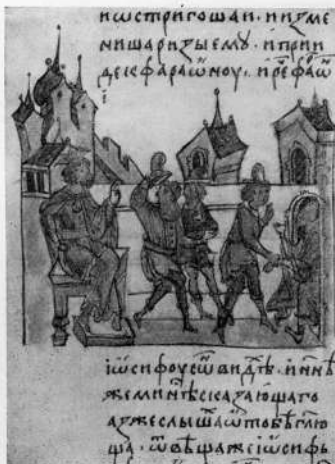 иѡстригошаи · иизме
нишаризыемꙋ · ипрїи
декфараѡноу · ирефаѡ
і
іѡсифоусѡвидѣ · иннѣ
жеминѣсказающаго
азжеслышаѡтобѣглю
ща · ѿвѣщажеіѡсифь